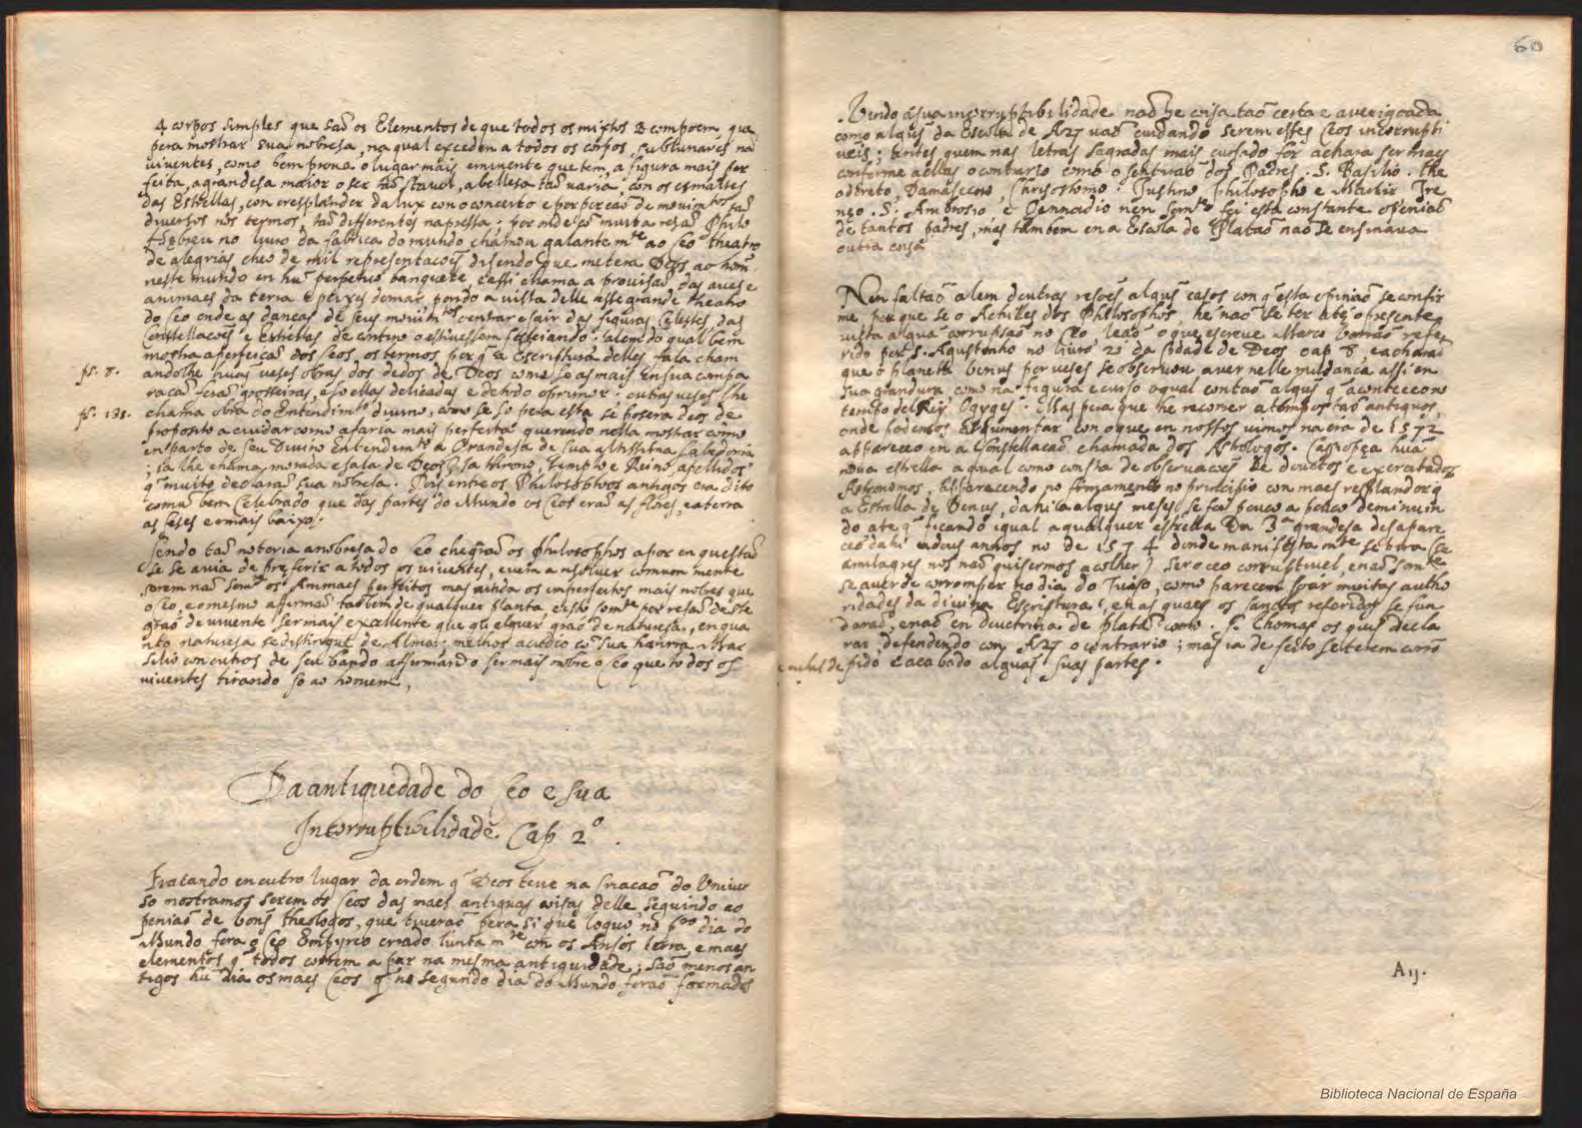 4 corpos simples que saõ os Elementos de que todos os mixtos se compoem, que
pera mostrar sua nobresa, na qual excedem a todos os corpos sublunares naõ
viventes, como bem prova o lugar mais eminente que tem, a figura mais per
feita, a grandesa maior o ser taõ stavel, a belleza taõ varia, con os esmaltes
das Estrellas, con o resplandor da lux con o concerto e proporcaõ de movim.tos taõ
diversos nos termos, taõ differentes na pressa; por onde com muita resaõ Philo
Hebreu no livro da fabrica do mundo chamou galantem.te ao Ceo theatro
de alegrias cheo de mil representacoẽs disendo que metera Deos ao hom̃
neste mundo en hũ perpetuo banquete e assi chama a provisaõ das aves e
animaes da terra e peixes do mar, pondo a vista delle este grande theatro
do Ceo onde as dancas de seus movim.tos, entrar e sair das figuras Celestes, das
Constellacoẽs e Estrellas de contino o estivessem festeiando. alem do qual bem
mostra a perfeicaõ dos Ceos, os termos por q̃ a Escriptura delles fala cham
ps. 8. andolhe huas veses obras dos dedos de Deos como se as mais en sua compa
racaõ foraõ grosseiras, e so ellas delicadas e de todo o primor: outras veses lhe
ps. 135. chama obra do Entendim.to divino, como se so pera esta se posera Deos de
proposito a cuidar como a faria mais perfeita querendo nella mostrar como
en parto de seu Divino Entendim.to a Grandesa de sua altissima Sabedoria
; ia lhe chama, morada e sala de Deos, ia throno, Templo e Reino, apellidos
q̃ muito declaraõ sua nobresa. Pois entre os Philosophos antigos era dito
comũ bem Celebrado que das partes do Mundo os Ceos eraõ as flores, e a terra
as feses e o mais baixo.
Sendo taõ notoria a nobresa do Ceo chegaraõ os Philosophos a por en questaõ
se se avia de preferir a todos os viventes, e vem a resolver commummente
serem naõ som.te os Animaes perfeitos mas ainda os imperfeitos mais nobres que
o Ceo, e o mesmo affirmaõ tambem de qualquer planta, e isto som.te por resaõ deste
grao de vivente ser mais excellente que qualquer grao de naturesa, en qua
nto naturesa se distingue de Alma: melhor acudio com sua harmonia Mar
silio con outros de seu bando affirmando ser mais nobre o Ceo que todos os
viventes tirando so ao homem,
Da antiquedade do Ceo e sua
Incorruptibilidade. Cap 2º.
Tratando en outro lugar da ordem q̃ Deos teve na criacaõ do Univer
so mostramos serem os Ceos das maes antiguas coisas delle seguindo ao
peniaõ de bons theologos, que tiveraõ pera si que loguo no pr.o dia do
Mundo fora o Ceo Empyreo creado iuntam.te com os Anjos terra, e maes
elementos q̃ todos correm a par na mesma antiguidade; saõ menos an
tigos hũ dia os maes Ceos q̃ no segundo dia do Mundo foraõ formados
60
Vindo á sua incorruptibilidade naõ he coisa taõ certa e averigoada
como algũs da Escola de Ar.es vaõ cuidando serem estes Ceos incorrupti
veis; antes quem nas letras sagradas mais cursado for achara ser maes
conforme a ellas o contrario como o sentiraõ dos Padres. S. Basilio. The
odoreto, Damasceno, Chrisostomo. Justino Philosopho e Martir Ire
neo. S. Ambrosio, e Gennadio nen som.te foi esta constante opiniaõ
de tantos padres, mas tambem en a Escola de Plataõ naõ se ensinava
outra coisa
Nem faltaõ alem doutras resoẽs algũs casos con q̃ esta opiniaõ se confir
me porque se o Achilles dos Philosophos, he naõ se ter ate o presente
vista algua corrupsaõ no Ceo leaõ o que escreve Marco Varraõ refe
rido por S. Agustinho no livro 21 da Cidade de Deos cap 8, e acharaõ
que o planeta Venus por veses se observou aver nelle mudancia assi en
sua grandura, como na figura e curso o qual contaõ algũs q̃ aconteceo no
tempo del Rey Ogyges. Mas pera que he recorrer a tempos taõ antiguos,
onde podemos argumentar con o que en nossos vimos na era de 1572
appareceo en a Constellacaõ chamada dos Astrologos. Cassiopea hũa
nova estrella a qual como consta de observacoẽs de doctos e exercitados
Astronomos, apparecendo no firmamento no principio con maes resplandor q̃
a Estrella de Venus, dahi a algũs meses se foi pouco a pouco deminuin
do ate q̃ ficando igual a qualquer estrella da 3ª grandesa desapare
ceo dahi a dous annos no de 1574 donde manifestam.te se tira (se
a milagres nos naõ quisermos acolher) ser o ceo corruptivel, e naõ som.te
se aver de corromper no dia do Juiso, como parecem soar muitas autho
ridades da divina Escriptura, en as quaes os santos referidos se fun
daraõ, e naõ en doctrina de Plataõ como. S. Thomas os quis decla
rar, defendendo con Ar.es o contrario; mas ia de feito se terem corrõ
pido e acabado alguãs suas partes.
A ij.
Biblioteca Nacional de España